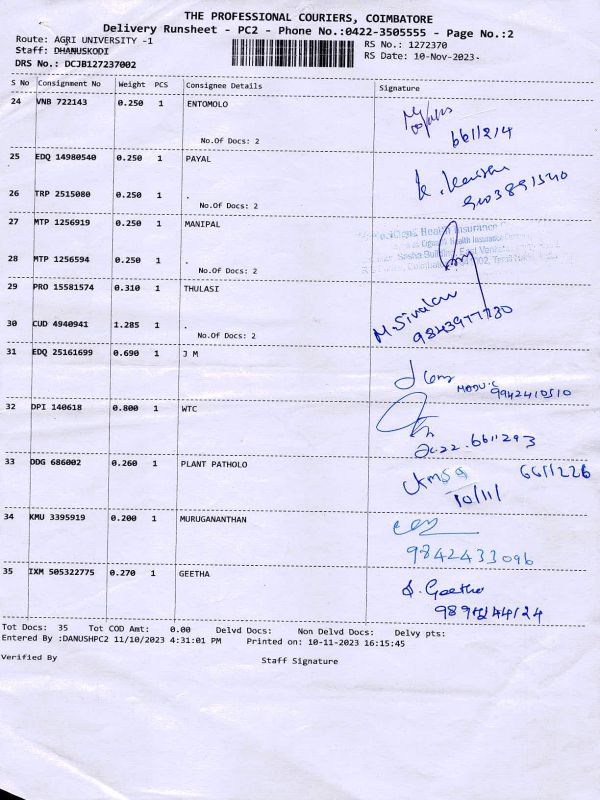 THE PROFESSIONAL COURIERS, COIMBATORE
Delivery Runsheet - PC2 - Phone No.:0422-3505555 - Page No.:2
Route: AGRI UNIVERSITY -1
RS No.: 1272370
Staff: DHANUSKODI
RS Date: 10-Nov-2023
DRS No.: DCJB127237002
S No Consignment No Weight PCS Consignee Details Signature
24 VNB 722143 0.250 1 ENTOMOLO
6611214
No.Of Docs: 2
25 EDQ 14980540 0.250 1 PAYAL
26 TRP 2515080 0.250 1 .
No.Of Docs: 2
27 MTP 1256919 0.250 1 MANIPAL
Health Insurance
Health Insurance
28 MTP 1256594 0.250 1 .
No.Of Docs: 2
29 PRO 15581574 0.310 1 THULASI
30 CUD 4940941 1.285 1 .
9843977730
No.Of Docs: 2
31 EDQ 25161699 0.690 1 J M
9942410510
32 DPI 140618 0.800 1 WTC
6611293
33 DDG 686002 0.260 1 PLANT PATHOLO
6611226
10/11/
34 KMU 3395919 0.200 1 MURUGANANTHAN
9842433096
35 IXM 505322775 0.270 1 GEETHA
S. Geetha
Tot Docs: 35 Tot COD Amt: 0.00 Delvd Docs: Non Delvd Docs: Delvy pts:
Entered By :DANUSHPC2 11/10/2023 4:31:01 PM Printed on: 10-11-2023 16:15:45
Verified By Staff Signature